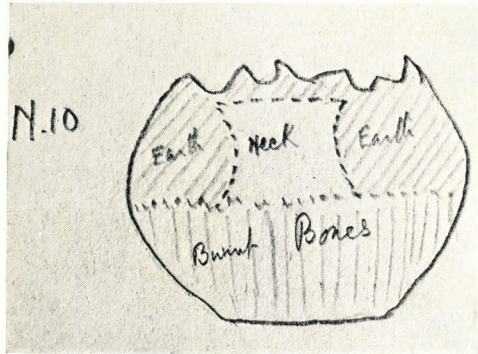 N.10
Earth Neck Earth
Burnt Bones